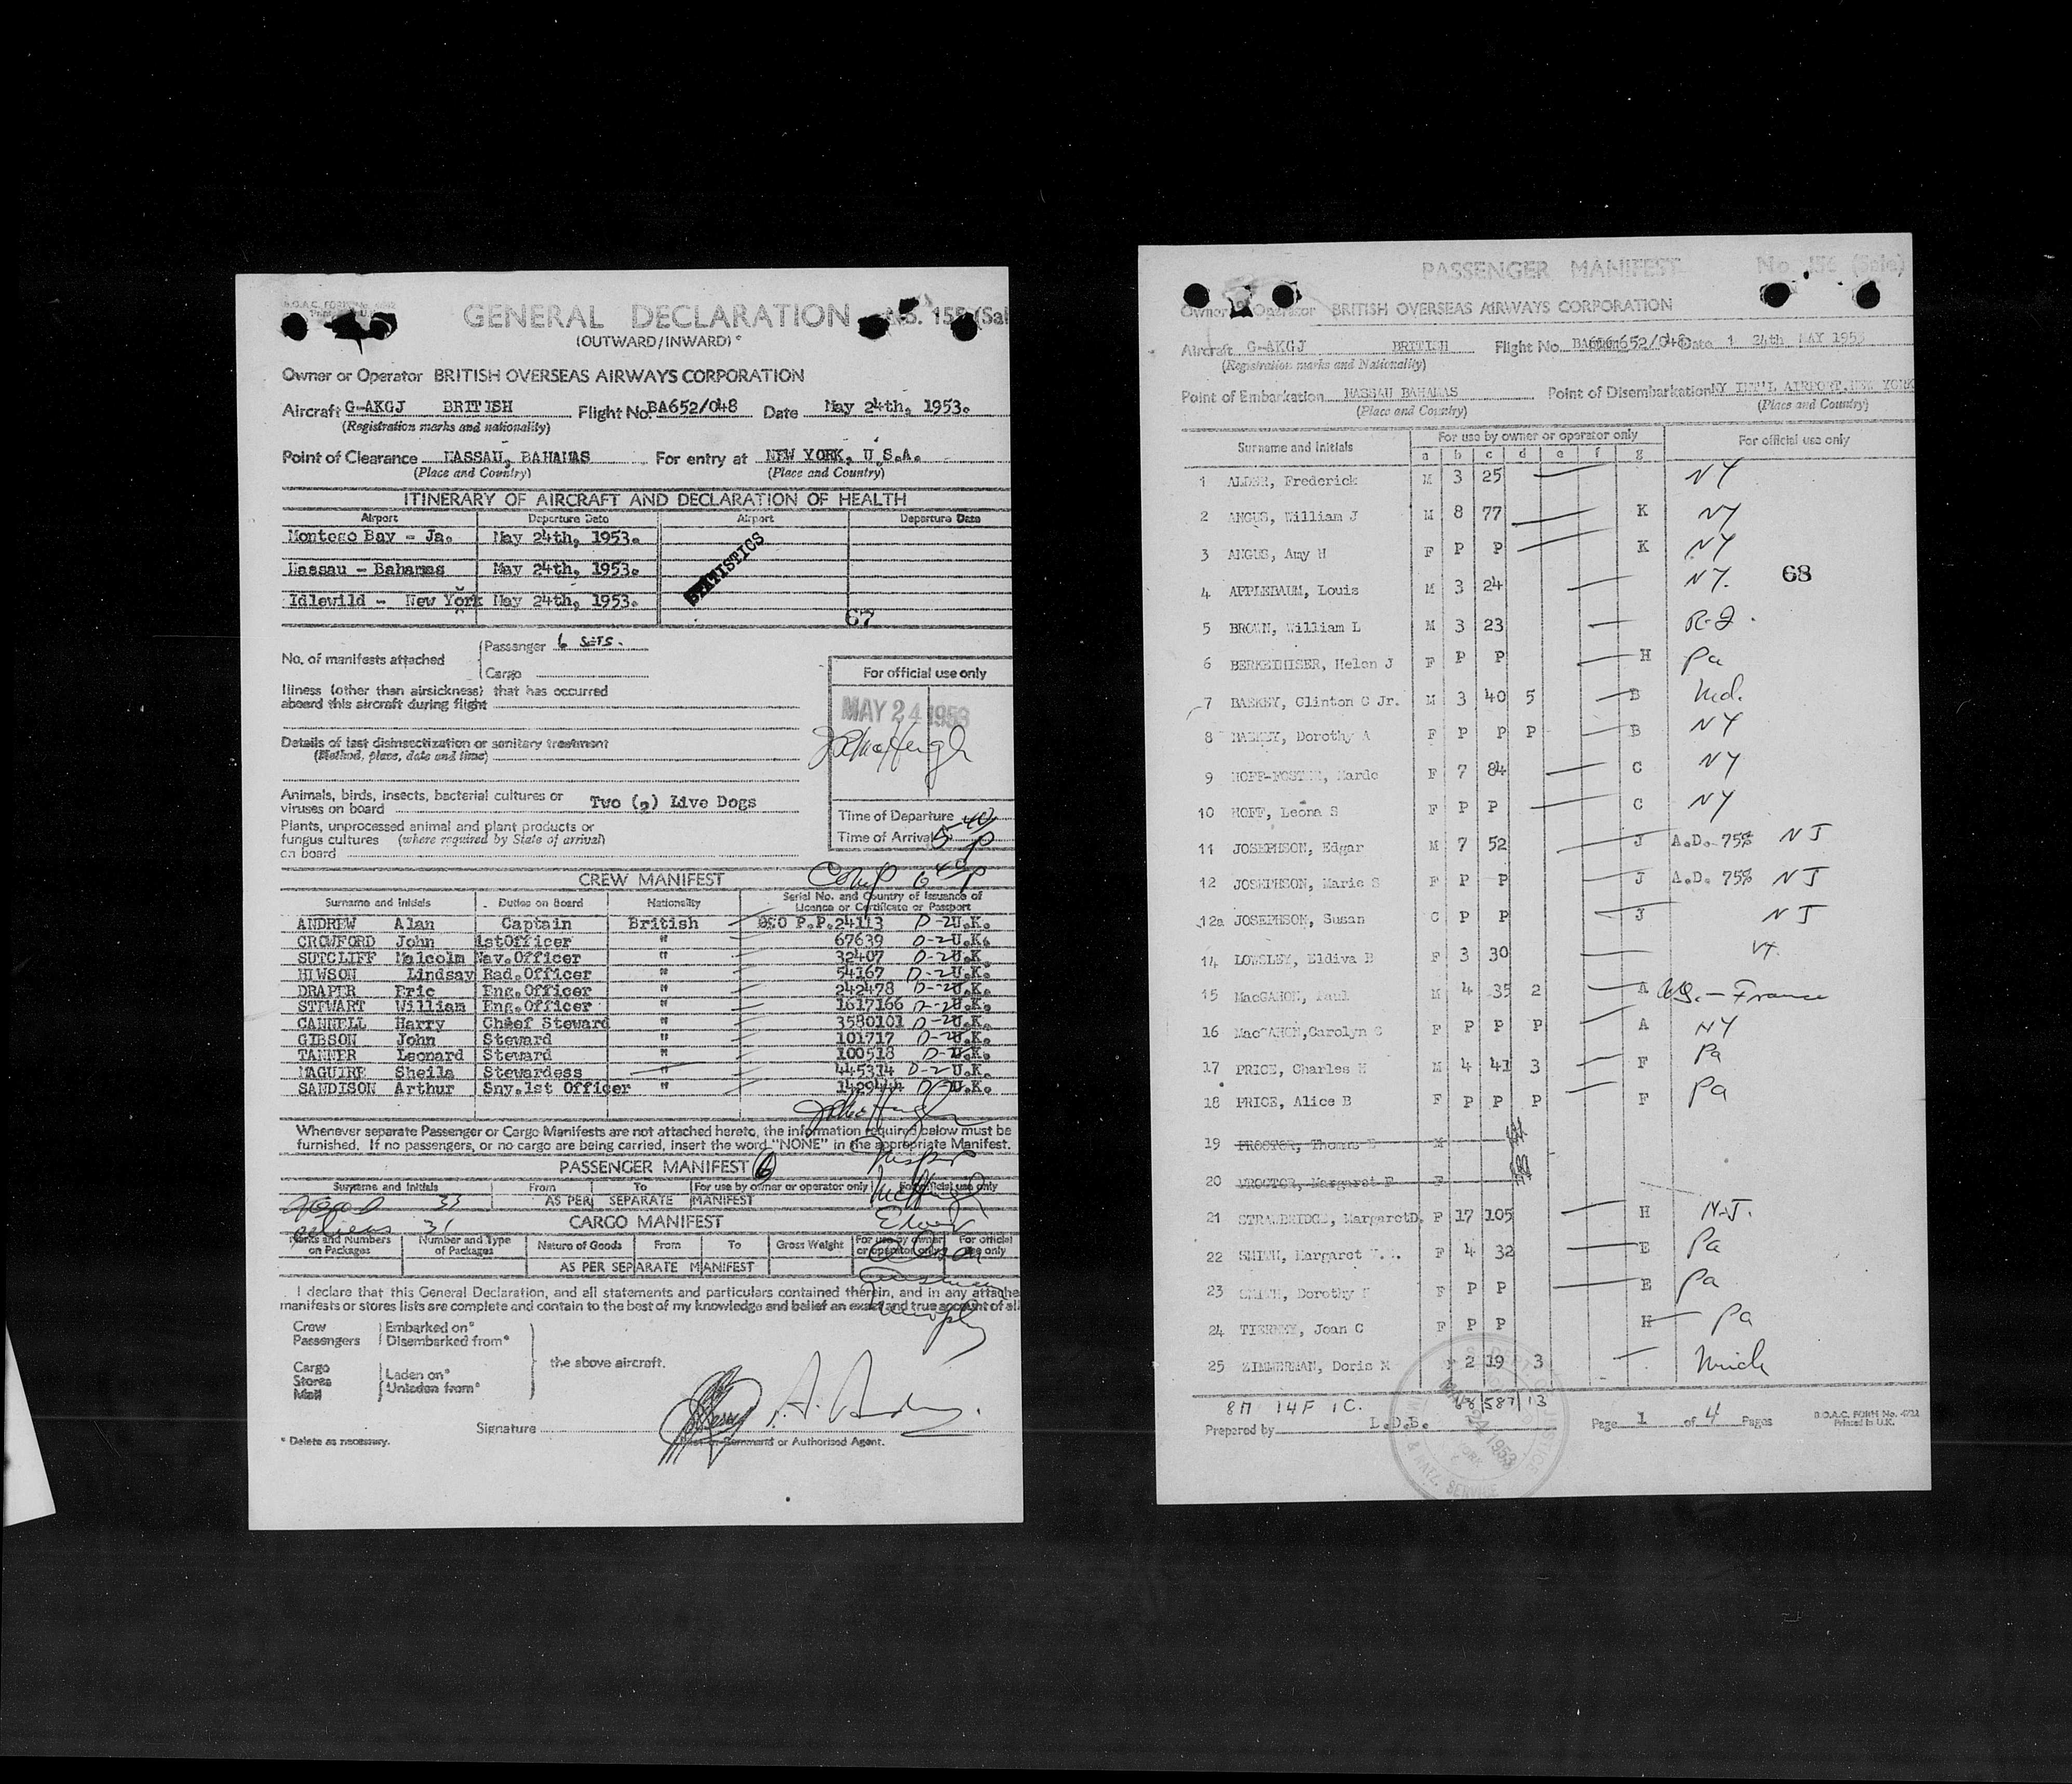 GENERAL DECLARATION
No. 155 (Sal
(OUTWARD/INWARD)*
Owner or Operator BRITISH OVERSEAS AIRWAYS CORPORATION
Aircraft G-AKGJ BRITISH Flight No. BA652/048 Date May 24th, 1953.
(Registration marks and nationality)
Point of Clearance NASSAU, BAHAMAS For entry at NEW YORK, U.S.A.
(Place and Country) (Place and Country)
ITINERARY OF AIRCRAFT AND DECLARATION OF HEALTH
Airport Departure Date Airport Departure Date
Montego Bay - Ja. May 24th, 1953.
Nassau - Bahamas May 24th, 1953.
Idlewild - New York May 24th, 1953.
STATISTICS
67
No. of manifests attached
Passenger 6 SETS.
Cargo
For official use only
Illness (other than airsickness) that has occurred
aboard this aircraft during flight
MAY 24 1953
Details of last disinsectization or sanitary treatment
(Method, place, date and time)
Animals, birds, insects, bacterial cultures or
viruses on board Two (2) Live Dogs
Plants, unprocessed animal and plant products or
fungus cultures (where required by State of arrival)
on board
Time of Departure
Time of Arrival 5 40 P
CREW MANIFEST
Surname and Initials Duties on Board Nationality Serial No. and Country of Issuance of
Licence or Certificate or Passport
ANDREW Alan Captain British P.P.24113 D-2 U.K.
CROWFORD John 1stOfficer " 67639 D-2 U.K.
SUTCLIFF Malcolm Nav.Officer " 32407 D-2 U.K.
HIWSON Lindsay Rad.Officer " 54167 D-2 U.K.
DRAPER Eric Eng.Officer " 242478 D-2 U.K.
STEWART William Eng.Officer " 1617166 D-2 U.K.
CANNELL Harry Chief Steward " 3580101 D-2 U.K.
GIBSON John Steward " 101717 D-2 U.K.
TANNER Leonard Steward " 100518 D-2 U.K.
MAGUIRE Sheila Stewardess " 445314 D-2 U.K.
SANDISON Arthur Sny.1st Officer " D-2 U.K.
Whenever separate Passenger or Cargo Manifests are not attached hereto, the information required below must be
furnished. If no passengers, or no cargo are being carried, insert the word "NONE" in the appropriate Manifest.
PASSENGER MANIFEST 6
Surname and Initials From To For use by owner or operator only For official use only
AS PER SEPARATE MANIFEST
33
31
CARGO MANIFEST
Marks and Numbers on Packages Number and Type of Packages Nature of Goods From To Gross Weight For use by owner or operator only For official use only
AS PER SEPARATE MANIFEST
I declare that this General Declaration, and all statements and particulars contained therein, and in any attache
manifests or stores lists are complete and contain to the best of my knowledge and belief an exact and true account of all
Crew Embarked on*
Passengers Disembarked from*
the above aircraft.
Cargo
Stores Laden on*
Mail Unladen from*
Signature
Pilot-in-Command or Authorised Agent.
* Delete as necessary.
PASSENGER MANIFEST No. 156 (Sala)
Owner or Operator BRITISH OVERSEAS AIRWAYS CORPORATION
Aircraft G-AKGJ BRITISH Flight No. 652/048 Date 24th MAY 1953
(Registration marks and Nationality)
Point of Embarkation NASSAU BAHAMAS Point of Disembarkation NY INT'L AIRPORT, NEW YORK
(Place and Country) (Place and Country)
Surname and Initials For use by owner or operator only For official use only
a b c d e f g
1 ALDER, Frederick M 3 25 NY
2 ANGUS, William J M 8 77 K NY
3 ANGUS, Amy H F P P K NY
68
4 APPLEBAUM, Louis M 3 24 NY.
5 BROWN, William L M 3 23 R-I.
6 BERKEIHISER, Helen J F P P H Pa
7 BASKEY, Clinton C Jr. M 3 40 5 B Md.
8 Dorothy A F P P P B NY
9 F 7 84 C NY
10 HOFF, Leona S F P P C NY
11 JOSEPHSON, Edgar M 7 52 J A.D. 75% NJ
12 JOSEPHSON, Marie S F P P J A.D. 75% NJ
12a JOSEPHSON, Susan C P P J NJ
14 LOWSLEY, Eldiva B F 3 30 Vt.
15 MacGAHON, Paul M 4 35 2 A France
16 MacGAHON, Carolyn C F P P P A NY
17 PRICE, Charles H M 4 41 3 F Pa
18 PRICE, Alice B F P P P F Pa
19 PROCTOR, Thomas B M
20 PROCTOR, Margaret F F
21 STRAWBRIDGE, MargaretD. F 17 105 H N-J.
22 SMITH, Margaret F 4 32 E Pa
23 SMITH, Dorothy F P P E Pa
24 TIERNEY, Joan C F P P H Pa
25 ZIMMERMAN, Doris M F 2 19 3 Mich
8M 14F 1C. 68 587 13
Prepared by L.D.B. Page 1 of 4 Pages
B.O.A.C. FORM No.
Printed in U.K.